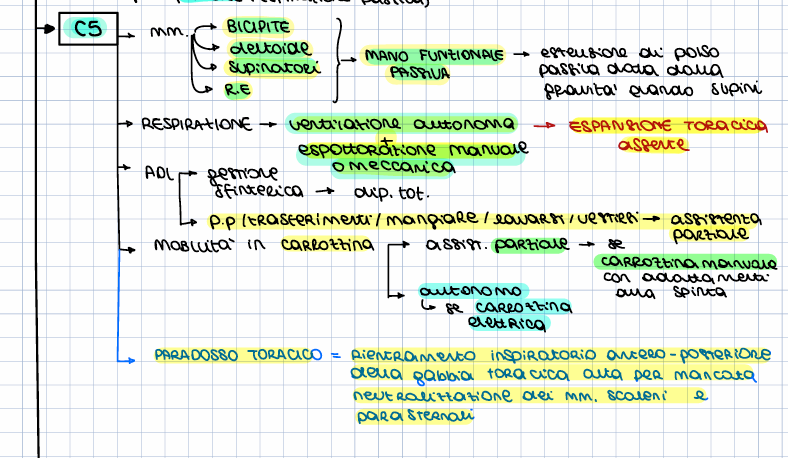 C5
mm.
BICIPITE
deltoide
supinatori
R.E
MANO FUNZIONALE
PASSIVA
estensione di polso
passiva data dalla
gravita' quando supini
RESPIRAZIONE → ventilazione autonoma → ESPANSIONE TORACICA
+
assente
espettorazione manuale
o meccanica
ADL
gestione
sfinterica → dip. tot.
p.p / trasferimenti / mangiare / lavarsi / vestirsi → assistenza
parziale
MOBILITA' IN CARROZZINA
assist. parziale → se
carrozzina manuale
con adattamenti
alla spinta
autonomo
↳ se carrozzina
elettrica
PARADOSSO TORACICO = Rientramento inspiratorio antero-posteriore
della gabbia toracica alta per mancata
neutralizzazione dei mm. scaleni e
parasternali